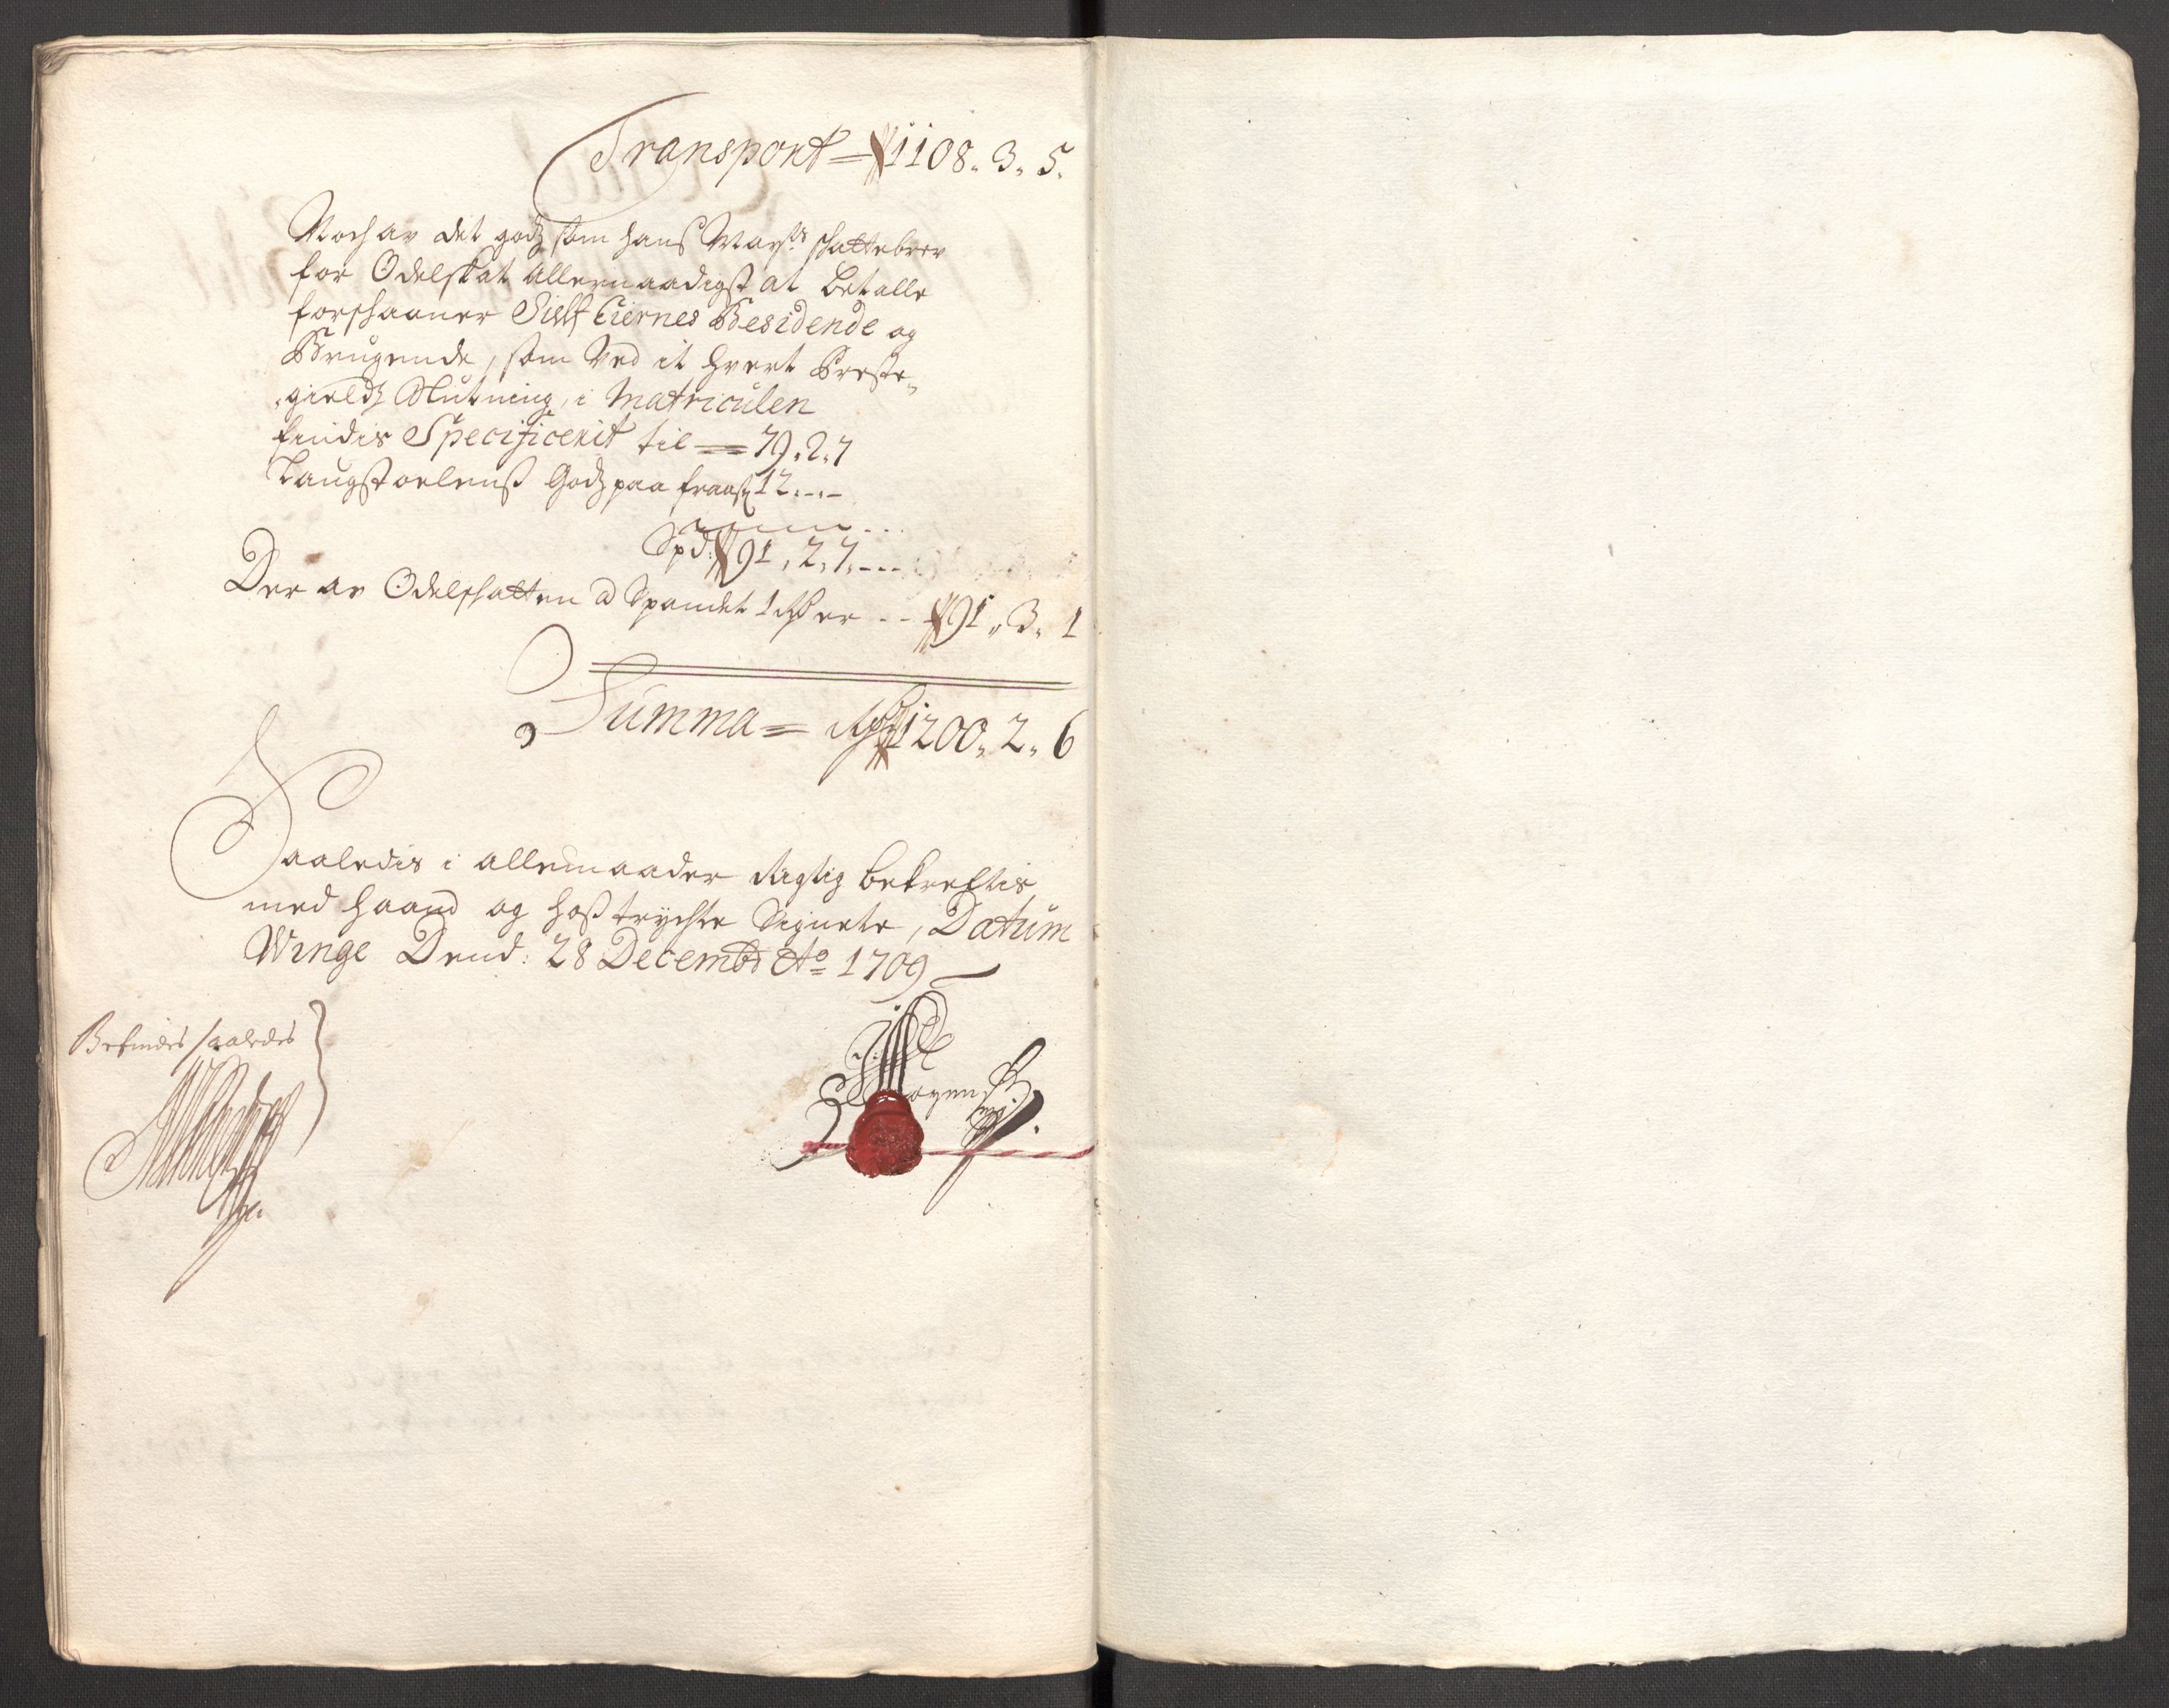 Transport = 1108. 3. 5.
Noch av det godz som hans Mayts schattebrev
for Odelskat allernaadigst at betalle
forschaaner Sielf Eiernes Besidende og
Brugende, som ved it hvert Preste-
gieldz Slutning, i Matriculen
findis Specificerit til = 79. 2. 7
Laugstoelens Godz paa 12. - -
Spd: 91. 2. 7. - - -
Der av Odelschatten a Spandet 1 Rdr er - - 91. 3. 1
Summa = Rdr 1200. 2. 6
Saaledis i allemaader Rigtig bekreftis
med haand og hostrychte Signete, Datum
Winge Dend: 28 Decembr Ao 1709
Befindes saaledes